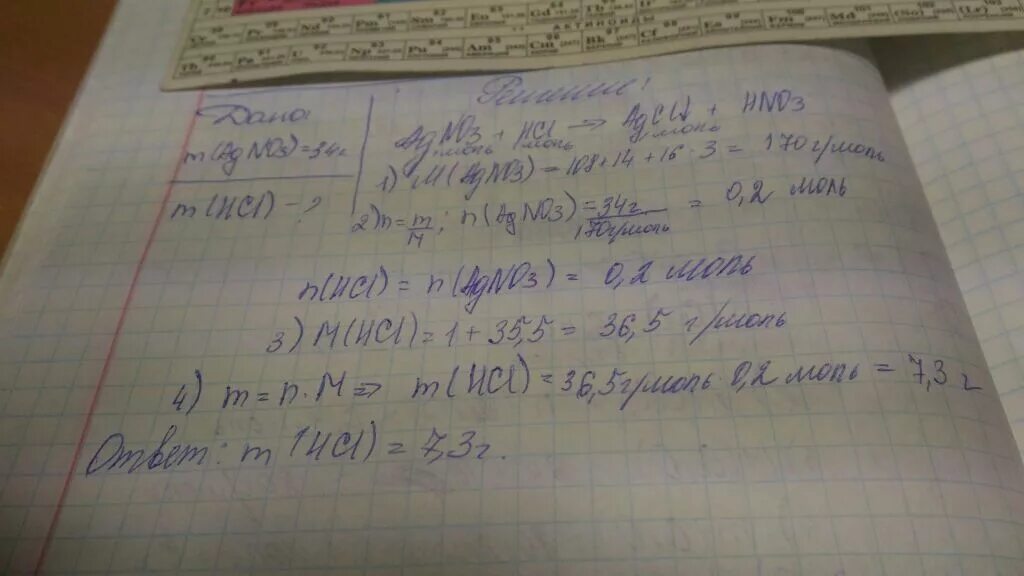 АКТИНОИДЫ
Th Pa U Np Pu Am Cm Bk Cf Es Fm Md (No) (Lr)
Дано:
m(AgNO3)=34г
m(HCl) – ?
Решение:
AgNO3 + HCl → AgCl↓ + HNO3
1моль 1моль 1моль
1) M(AgNO3) = 108+14+16·3 = 170 г/моль
2) n=m/M; n(AgNO3) = 34г/170г/моль = 0,2 моль
n(HCl) = n(AgNO3) = 0,2 моль
3) M(HCl) = 1 + 35,5 = 36,5 г/моль
4) m = n·M ⇒ m(HCl) = 36,5г/моль·0,2 моль = 7,3 г
Ответ: m(HCl) = 7,3г.